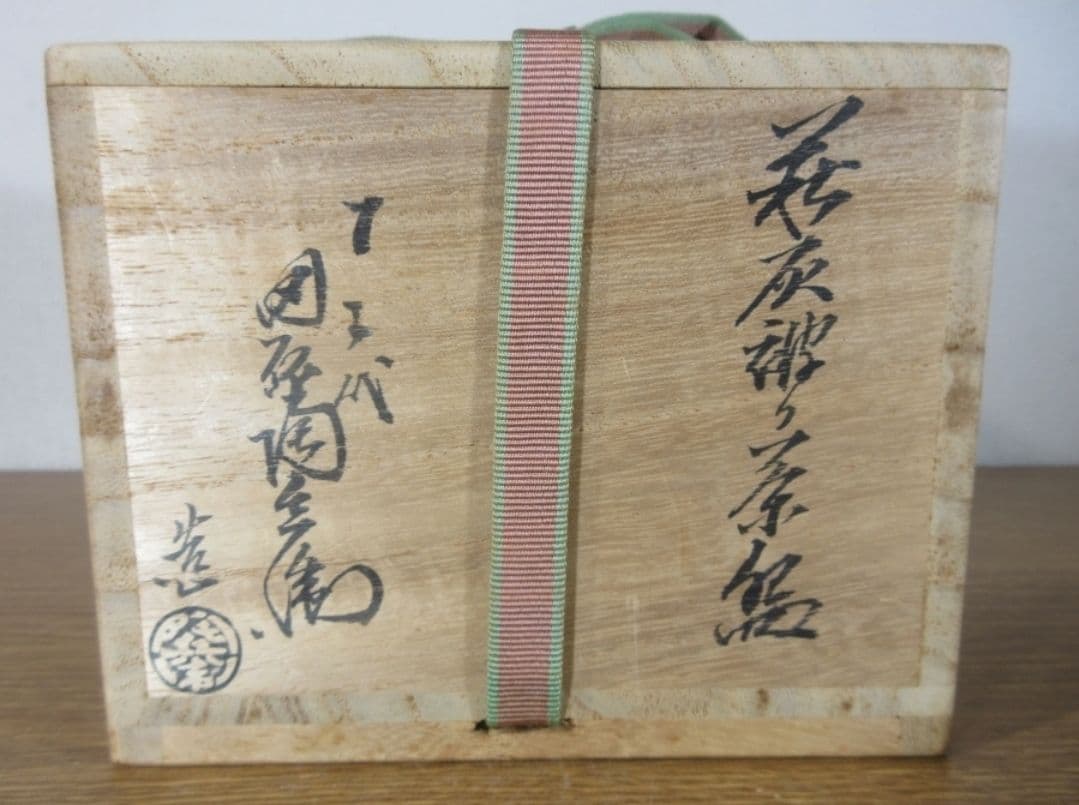 萩灰被り茶盌
十三代
田原陶兵衛
造